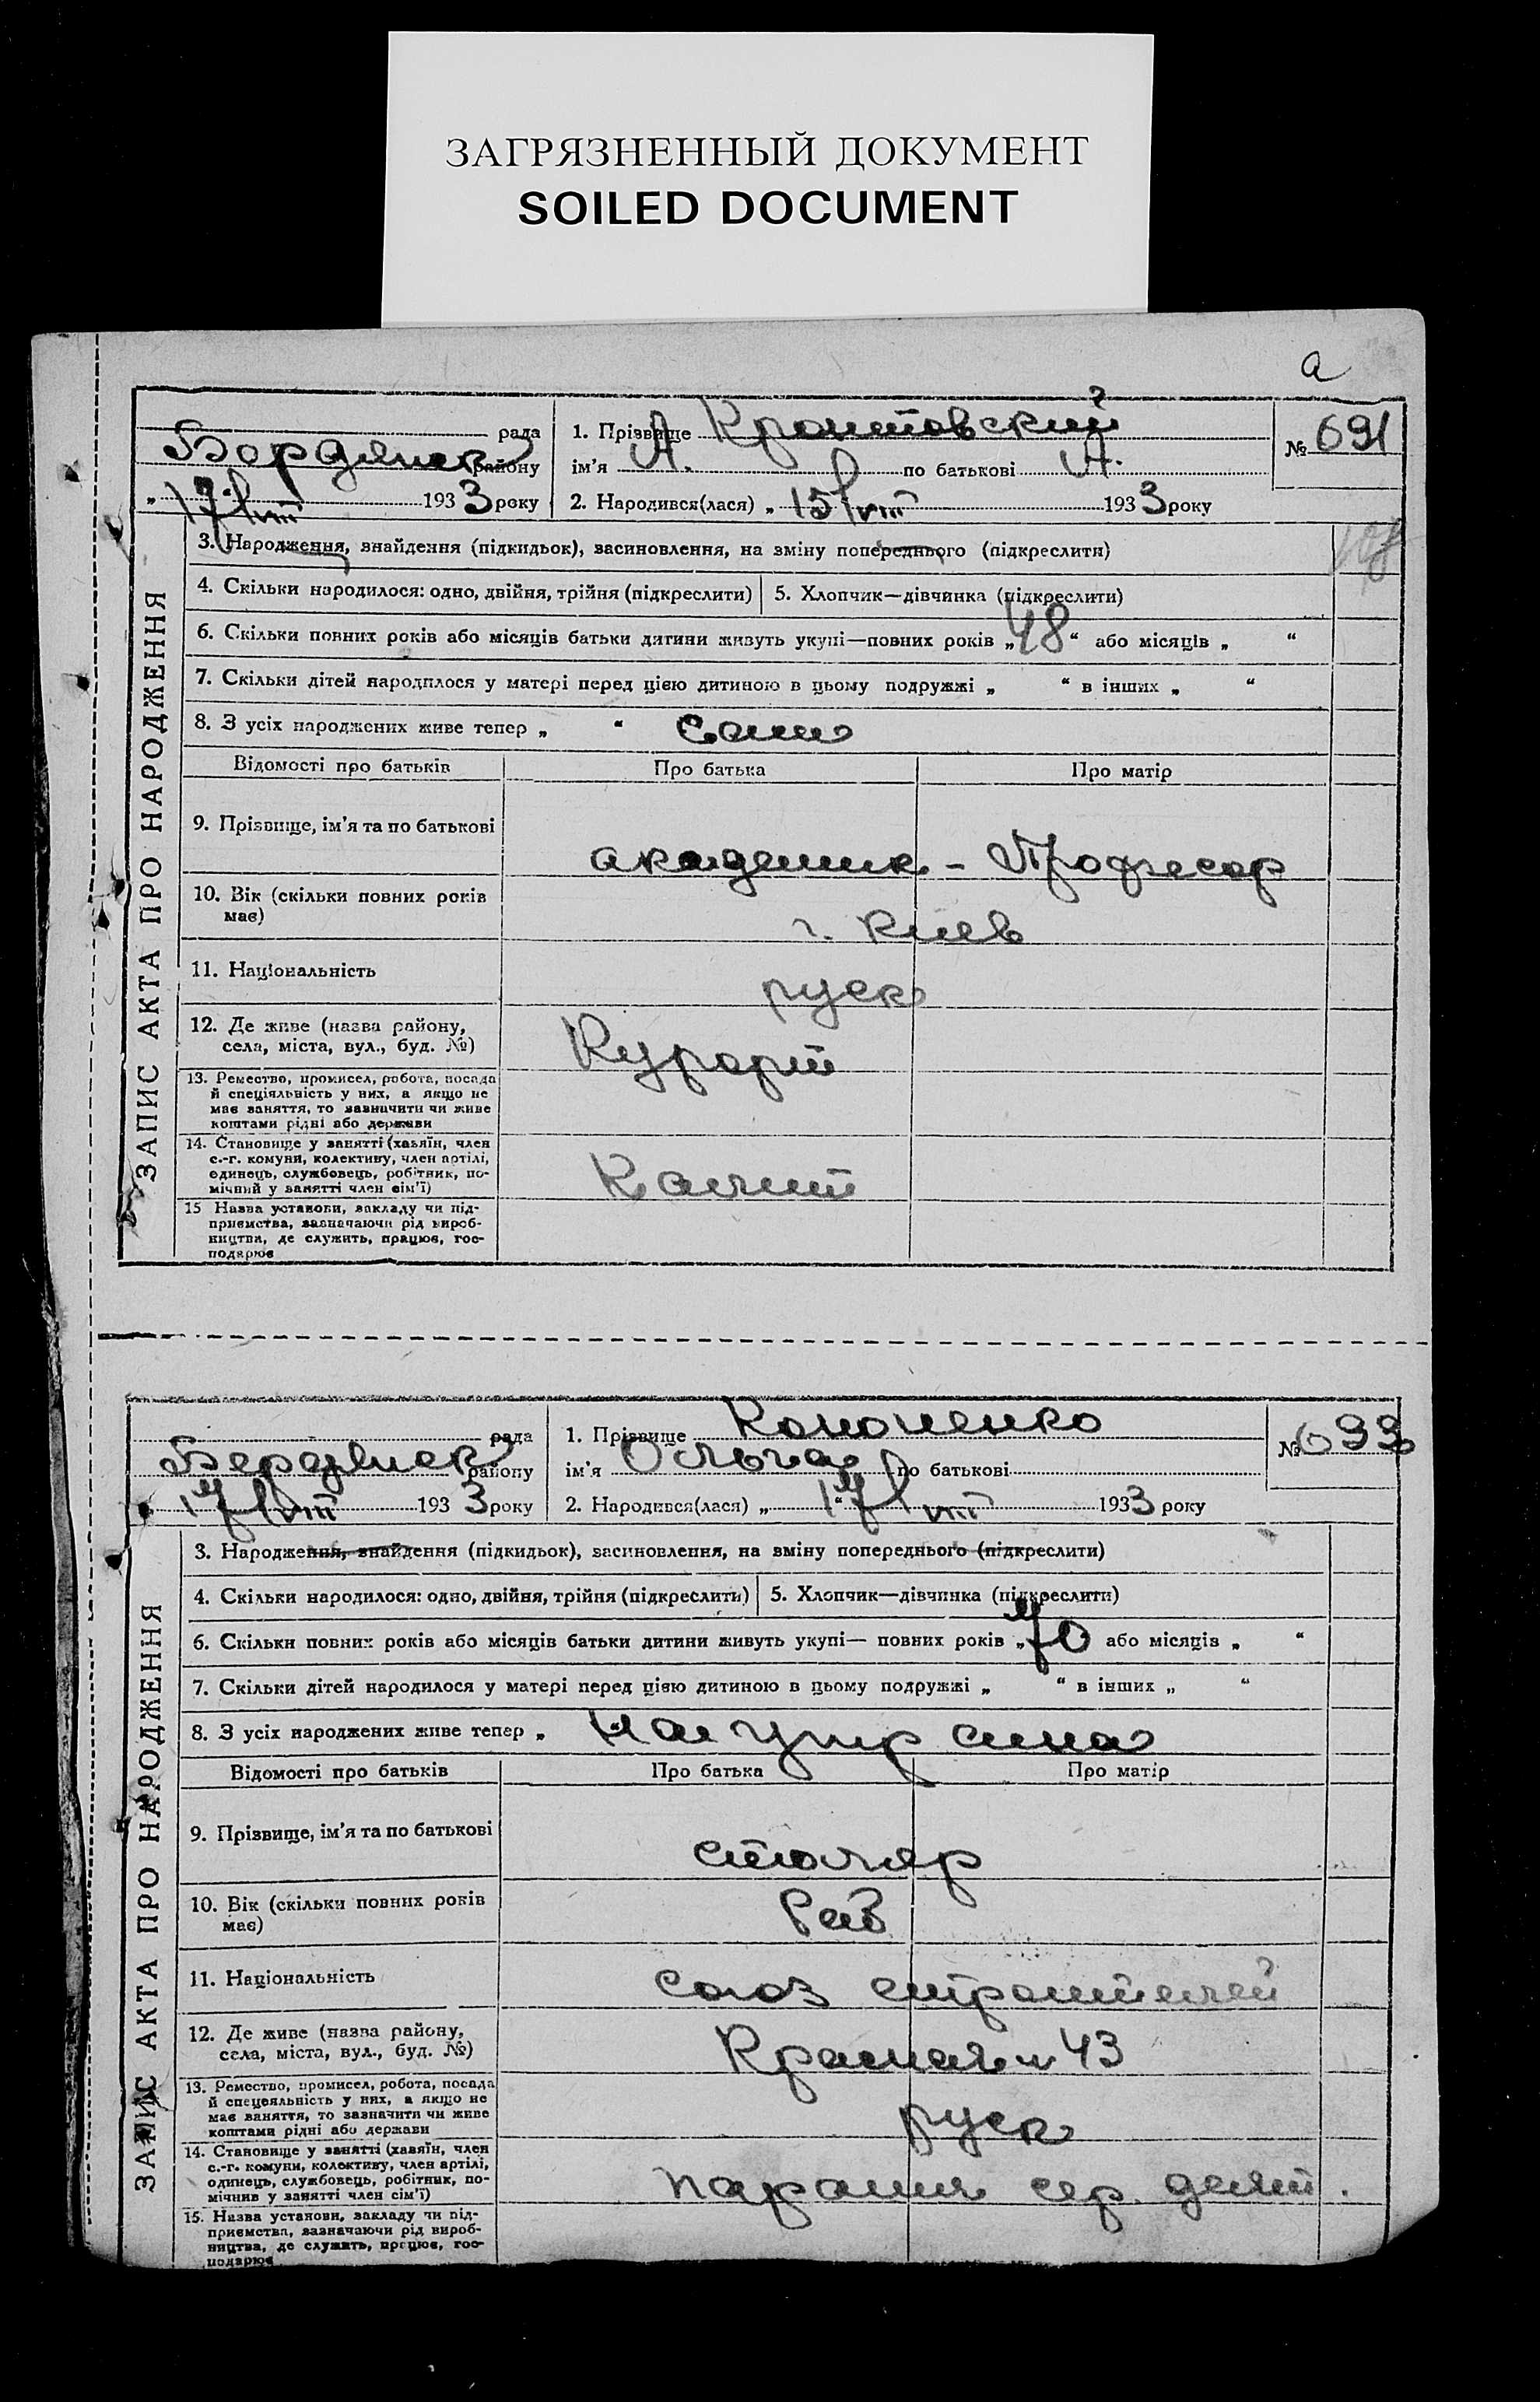 ЗАГРЯЗНЕННЫЙ ДОКУМЕНТ
SOILED DOCUMENT
а
ЗАПИС АКТА ПРО НАРОДЖЕННЯ
рада
Бердянск району
17/VIII 1933 року
1. Прізвище
ім'я А. по батькові А.
2. Народився(лася) „ 15/VIII 1933 року
№ 691
3. Народження, знайдення (підкидьок), засиновлення, на зміну попереднього (підкреслити)
4. Скільки народилося: одно, двійня, трійня (підкреслити) 5. Хлопчик—дівчинка (підкреслити)
6. Скільки повних років або місяців батьки дитини живуть укупі—повних років „48“ або місяців „ “
7. Скільки дітей народилося у матері перед цією дитиною в цьому подружжі „ “ в інших „ “
8. З усіх народжених живе тепер „ “
Відомості про батьків Про батька Про матір
9. Прізвище, ім'я та по батькові
академик - Професор
10. Вік (скільки повних років має)
г. Киев
11. Національність
руск
12. Де живе (назва району, села, міста, вул., буд. №)
Курорт
13. Ремество, промисел, робота, посада й спеціяльність у них, а якщо не має заняття, то зазначити чи живе коштами рідні або держави
14. Становище у занятті (хазяїн, член с.-г. комуни, колективу, член артілі, одинець, службовець, робітник, помічний у занятті член сім'ї)
15 Назва установи, закладу чи підприємства, зазначаючи рід виробництва, де служить, працює, господарює
ЗАПИС АКТА ПРО НАРОДЖЕННЯ
рада
Бердянск району
17/VIII 1933 року
1. Прізвище Кононенко
ім'я Ольга по батькові
2. Народився(лася) „ 17/VIII 1933 року
№
3. Народження, знайдення (підкидьок), засиновлення, на зміну попереднього (підкреслити)
4. Скільки народилося: одно, двійня, трійня (підкреслити) 5. Хлопчик—дівчинка (підкреслити)
6. Скільки повних років або місяців батьки дитини живуть укупі— повних років „70 або місяців „ “
7. Скільки дітей народилося у матері перед цією дитиною в цьому подружжі „ “ в інших „ “
8. З усіх народжених живе тепер „
Відомості про батьків Про батька Про матір
9. Прізвище, ім'я та по батькові
столяр
10. Вік (скільки повних років має)
Раб
11. Національність
Союз строителей
12. Де живе (назва району, села, міста, вул., буд. №)
Красная 43
13. Ремество, промисел, робота, посада й спецеяльність у них, а якщо не має заняття, то зазначити чи живе коштами рідні або держави
руск
14. Становище у занятті (хазяїн, член с.-г. комуни, колективу, член артілі, одинець, службовець, робітник, помічнив у занятті член сім'ї)
сер. деят.
15. Назва установи, закладу чи підприємства, зазначаючи рід виробництва, де служить, працює, господарює